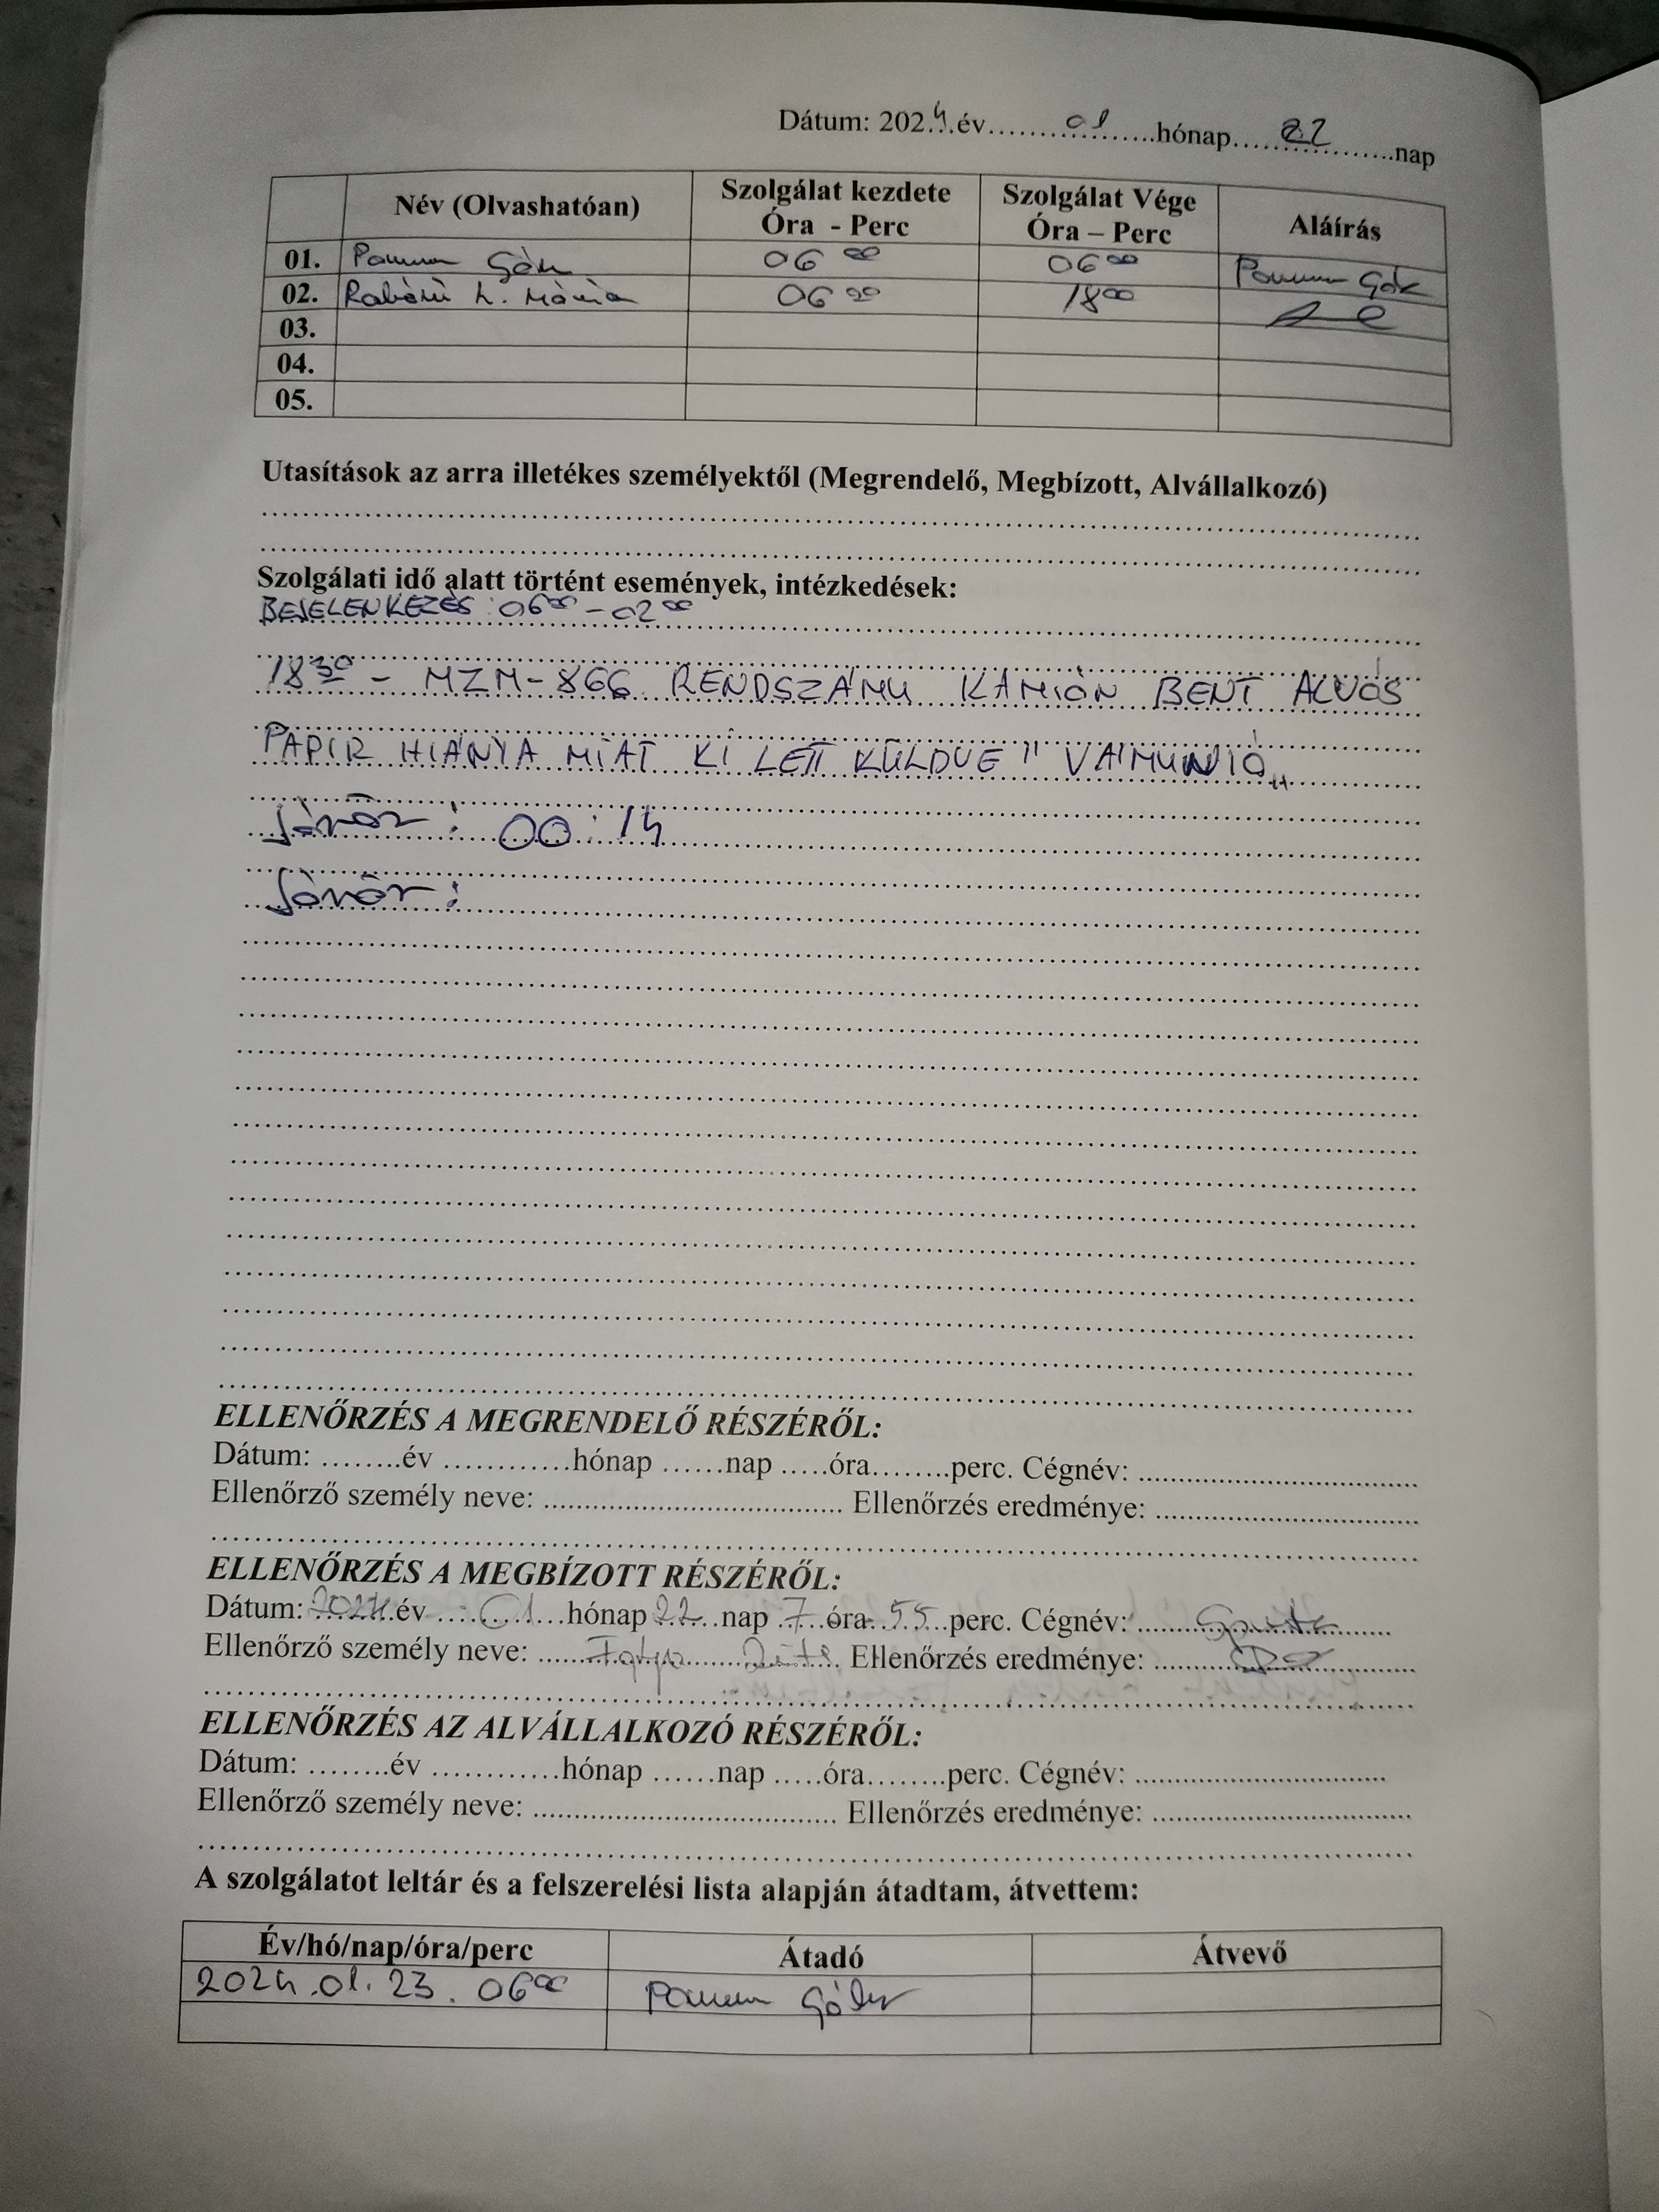 Dátum: 2024.év.....01.....hónap.....22.....nap
Név (Olvashatóan) Szolgálat kezdete Óra - Perc Szolgálat Vége Óra – Perc Aláírás
01. 06 00 06 00
02. L. Mária 06 00 18 00
03.
04.
05.
Utasítások az arra illetékes személyektől (Megrendelő, Megbízott, Alvállalkozó)
Szolgálati idő alatt történt események, intézkedések:
BEJELENKEZÉS: 06 00 - 02 00
18 30 - MZM-866 RENDSZÁMU KAMION BENT ALVÓS
PAPIR HIÁNYA MIAT KI LETT KÜLDVE " VAIMUNIÓ "
Járőr: 00:14
Járőr:
ELLENŐRZÉS A MEGRENDELŐ RÉSZÉRŐL:
Dátum: ........év ............hónap ......nap .....óra........perc. Cégnév: ........................................
Ellenőrző személy neve: ........................................... Ellenőrzés eredménye: ......................................
ELLENŐRZÉS A MEGBÍZOTT RÉSZÉRŐL:
Dátum: 2024.év ....01...hónap 22..nap .7..óra 55..perc. Cégnév:
Ellenőrző személy neve: Ellenőrzés eredménye:
ELLENŐRZÉS AZ ALVÁLLALKOZÓ RÉSZÉRŐL:
Dátum: ........év ............hónap ......nap .....óra........perc. Cégnév: ....................................
Ellenőrző személy neve: ............................................ Ellenőrzés eredménye: .....................................
A szolgálatot leltár és a felszerelési lista alapján átadtam, átvettem:
Év/hó/nap/óra/perc Átadó Átvevő
2024.01.23. 06 00